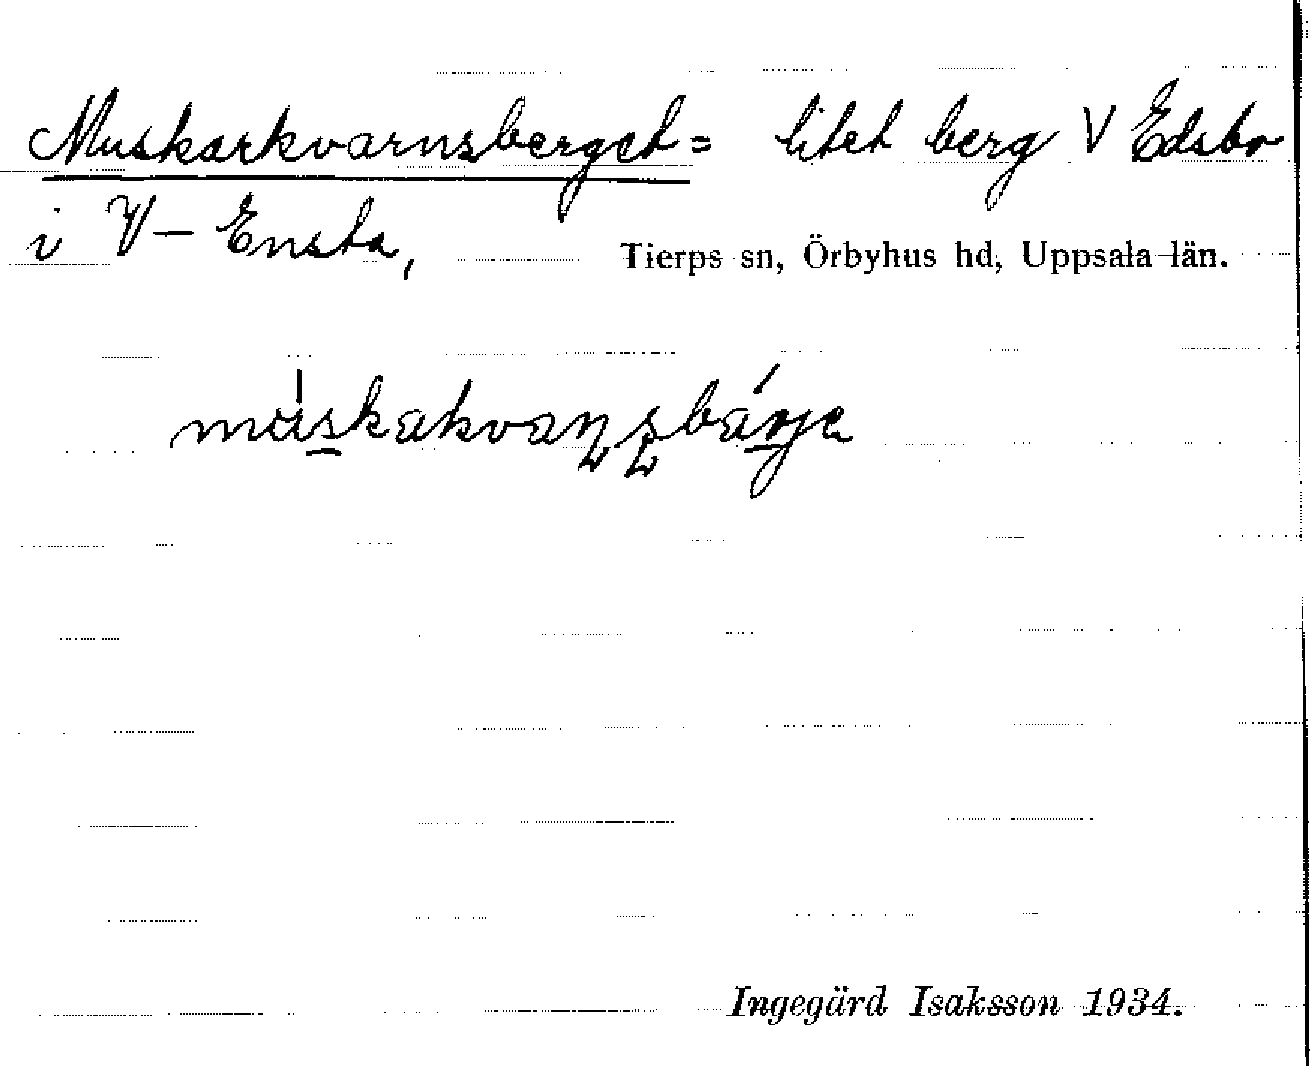 Muskarkvarnsberget = litet berg V Edsbo
i V-Ensta,
Tierps sn, Örbyhus hd, Uppsala län.
Ingegärd Isaksson 1934.